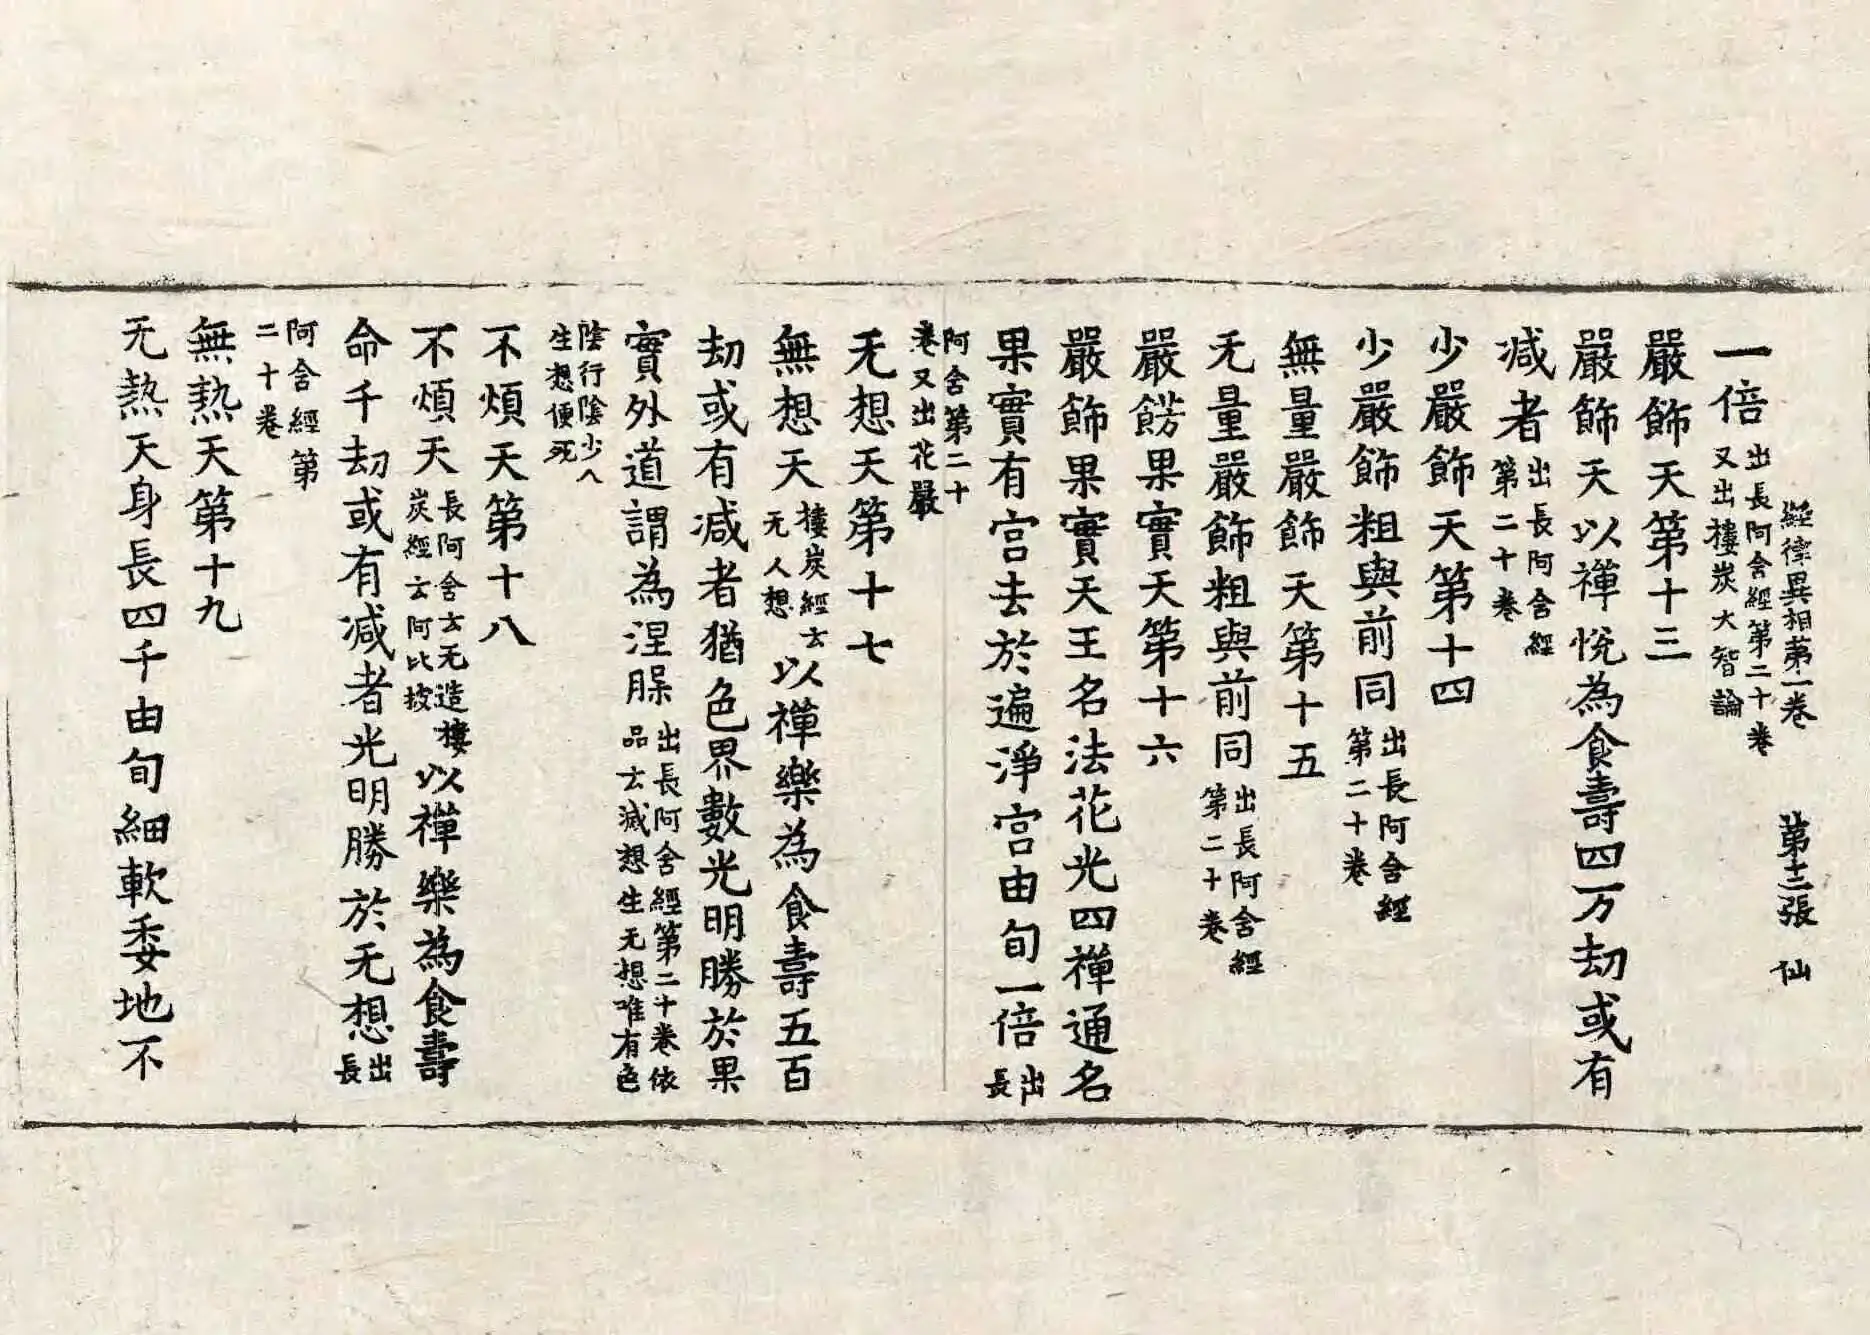 經律異相第一卷 第十三張 仙
一倍出長阿含經第二十卷又出樓炭大智論
嚴飾天第十三
嚴飾天以禪悅為食壽四万劫或有
减者出長阿含經第二十卷
少嚴飾天第十四
少嚴飾粗與前同出長阿含經第二十卷
無量嚴飾天第十五
无量嚴飾粗與前同出長阿含經第二十卷
嚴餝果實天第十六
嚴飾果實天王名法花光四禪通名
果實有宫去於遍淨宫由旬一倍出長
阿含第二十卷又出花嚴
无想天第十七
無想天樓炭經云无人想以禪樂為食壽五百
劫或有减者猶色界數光明勝於果
實外道謂為涅槃出長阿含經第二十卷依品云滅想生无想唯有色
陰行陰少入生想便死
不煩天第十八
不煩天長阿含云无造樓炭經云阿比披以禪樂為食壽
命千劫或有减者光明勝於无想出長
阿含經第二十卷
無熱天第十九
无熱天身長四千由旬細軟委地不